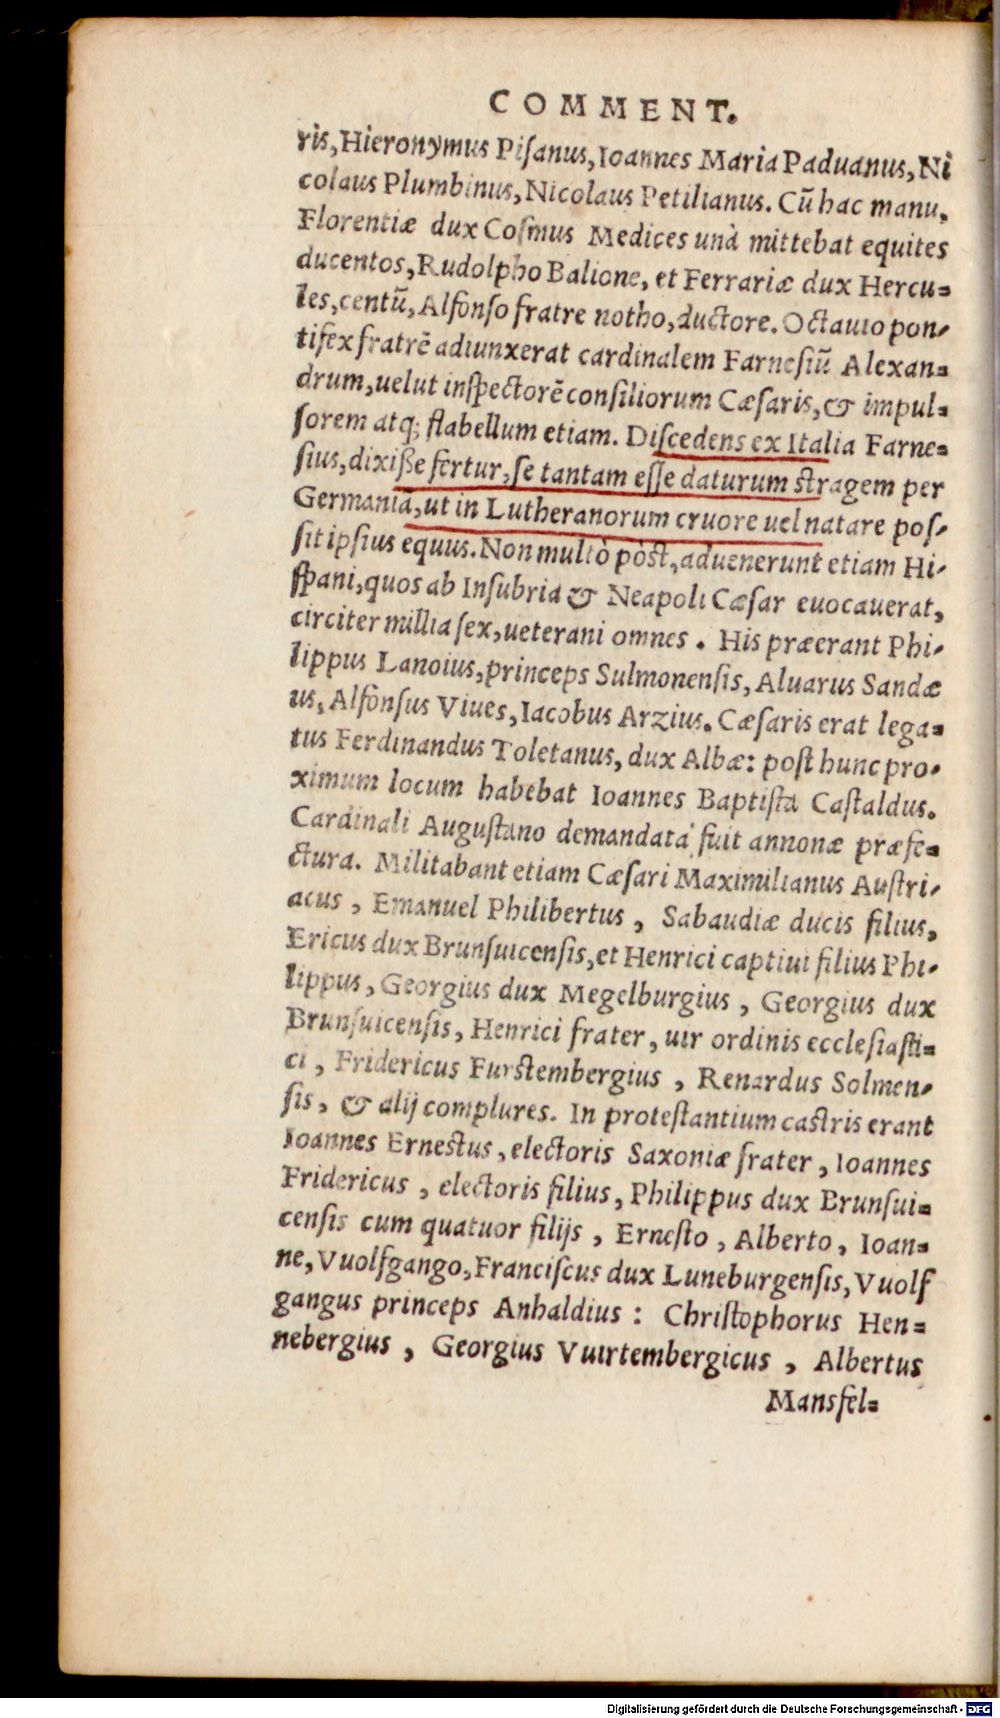 COMMENT.
ris, Hieronymus Piſanus, Ioannes Maria Paduanus, Ni
colaus Plumbinus, Nicolaus Petilianus. Cū hac manu,
Florentiæ dux Coſmus Medices unà mittebat equites
ducentos, Rudolpho Balione, et Ferrariæ dux Hercu=
les, centū, Alfonſo fratre notho, ductore. Octauio pon-
tifex fratrē adiunxerat cardinalem Farneſiū Alexan=
drum, uelut inſpectorē conſiliorum Cæſaris, & impul=
ſorem atq; flabellum etiam. Diſcedens ex Italia Farne=
ſius, dixiſſe fertur, ſe tantam eſſe daturum ſtragem per
Germaniā, ut in Lutheranorum cruore uel natare poſ-
ſit ipſius equus. Non multò pòst, aduenerunt etiam Hi-
ſpani, quos ab Inſubria & Neapoli Cæſar euocauerat,
circiter millia ſex, ueterani omnes. His præerant Phi-
lippus Lanoius, princeps Sulmonenſis, Aluarus Sandæ
us, Alfonſus Viues, Iacobus Arzius. Cæſaris erat lega=
tus Ferdinandus Toletanus, dux Albæ: poſt hunc pro-
ximum locum habebat Ioannes Baptiſta Caſtaldus.
Cardinali Auguſtano demandata fuit annonæ præfe=
ctura. Militabant etiam Cæſari Maximilianus Auſtri-
acus, Emanuel Philibertus, Sabaudiæ ducis filius,
Ericus dux Brunſuicenſis, et Henrici captiui filius Phi-
lippus, Georgius dux Megelburgius, Georgius dux
Brunſuicenſis, Henrici frater, uir ordinis eccleſiaſti=
ci, Fridericus Furſtembergius, Renardus Solmen-
ſis, & alij complures. In proteſtantium caſtris erant
Ioannes Ernestus, electoris Saxoniæ frater, Ioannes
Fridericus, electoris filius, Philippus dux Brunſui=
cenſis cum quatuor filijs, Erneſto, Alberto, Ioan=
ne, Vuolfgango, Franciſcus dux Luneburgenſis, Vuolf
gangus princeps Anhaldius: Chriſtophorus Hen=
nebergius, Georgius Vuirtembergicus, Albertus
Mansfel=
Digitalisierung gefördert durch die Deutsche Forschungsgemeinschaft - DFG